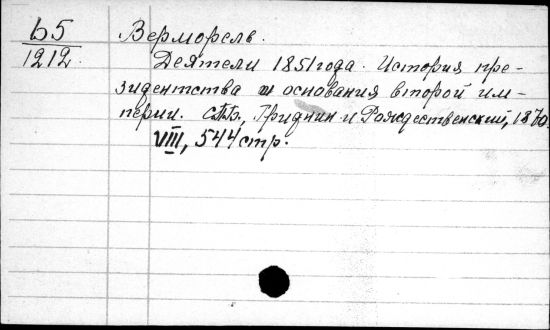 Ь5
1212.
Верморель.
Деятели 1851 года. История пре-
зидентства и основания второй им-
перии. СПБ., Гриднин и Рождественский, 1870.
VIII, 544 стр.